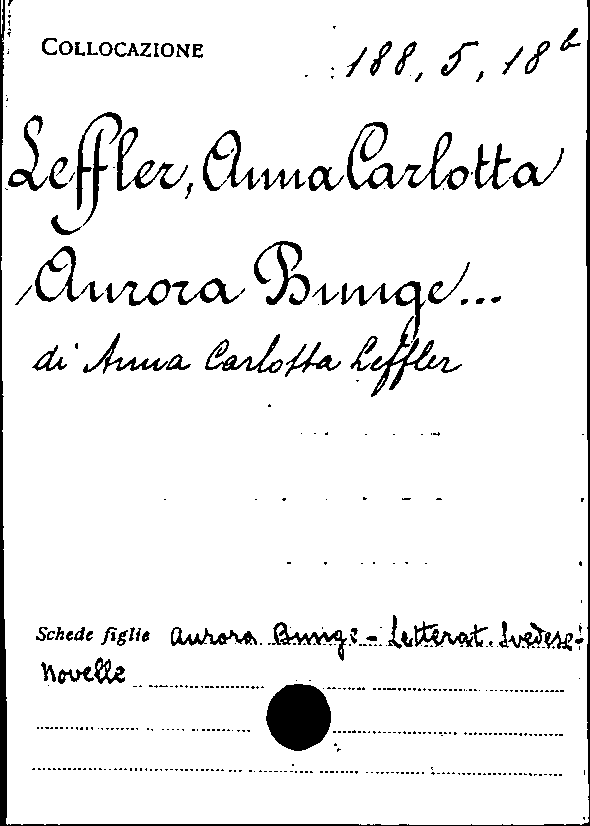 COLLOCAZIONE 188, 5, 18 b
Leffler, Anna Carlotta
Aurora Bunge...
di Anna Carlotta Leffler
Schede figlie Aurora Bunge - Letterat. Svedese -
Novelle